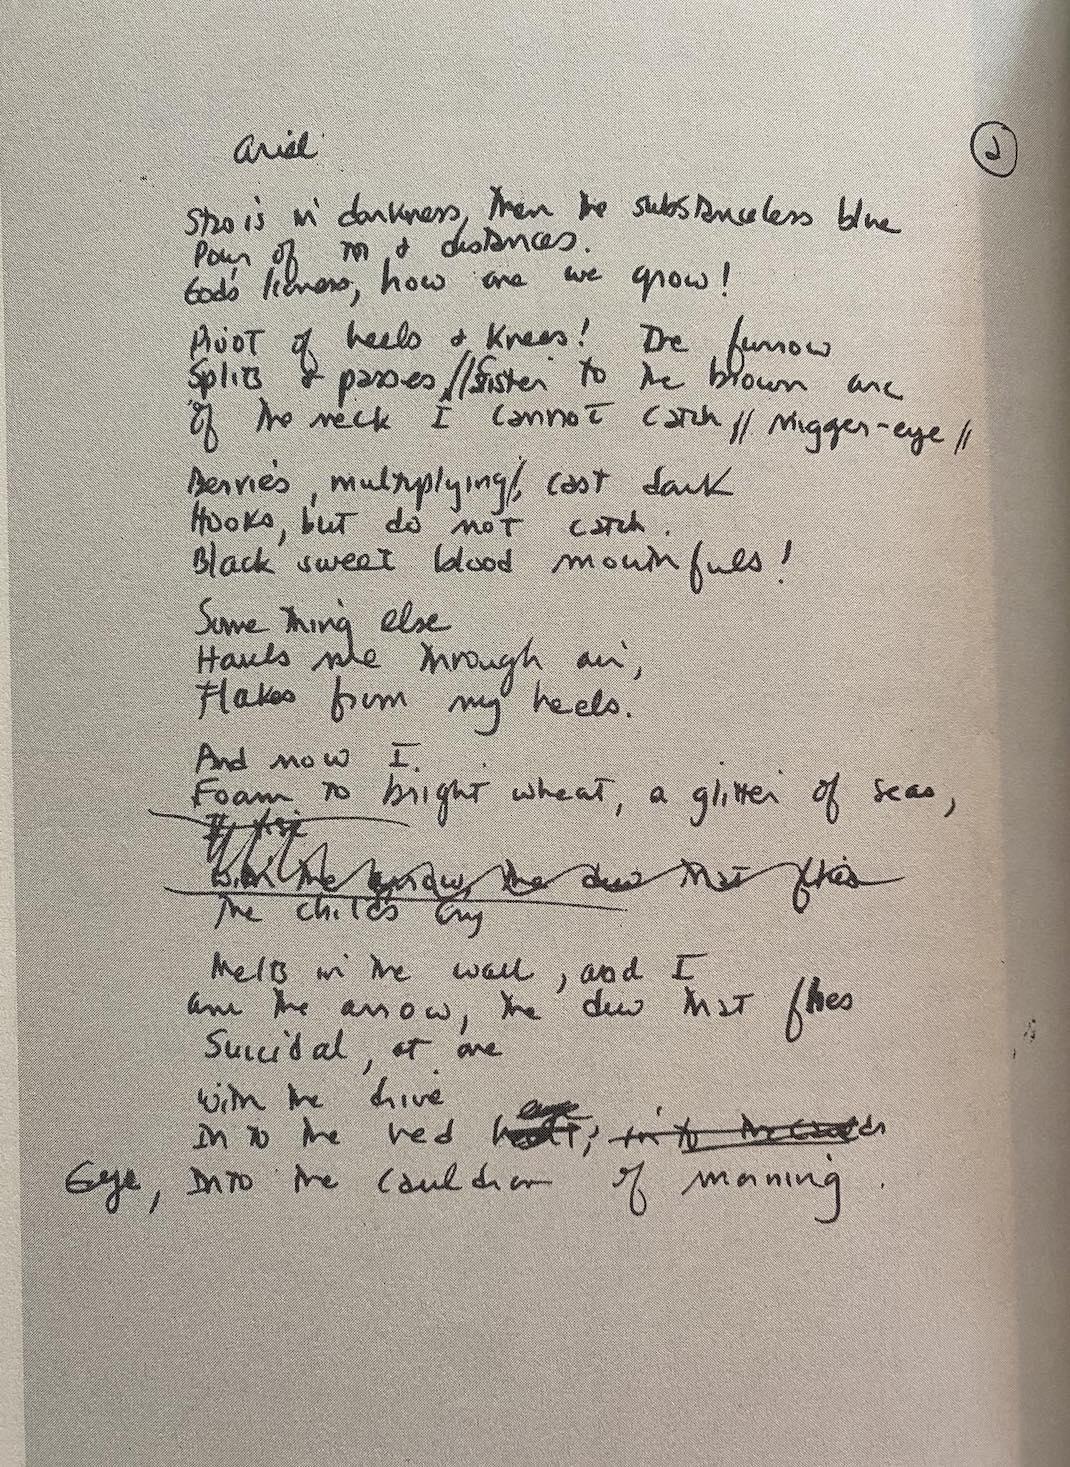 Ariel
2
Stasis in darkness, then the substanceless blue
Pour of tor & distances.
God's lioness, how one we grow!
Pivot of heels & knees! The furrow
Splits & passes, // sister to the brown arc
Of the neck I cannot catch // Nigger-eye //
Berries, multiplying, cast dark
Hooks, but do not catch.
Black sweet blood mouthfuls!
Something else
Hauls me through air,
Flakes from my heels.
And now I
Foam to bright wheat, a glitter of seas,
the arrow, the dew that flies
The child's cry
Melts in the wall, and I
am the arrow, the dew that flies
Suicidal, at one
with the drive
Into the red
Eye, Into the cauldron of morning.